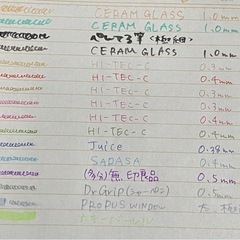 CERAM GLASS 1.0mm
CERAM GLASS 1.0mm
ぺんてる筆 <極細>
CERAM GLASS 1.0mm
HI-TEC-C 0.3mm
HI-TEC-C 0.4mm
HI-TEC-C 0.3mm
HI-TEC-C 0.4mm
HI-TEC-C 0.4mm
HI-TEC-C 0.4mm
Juice 0.38mm
SARASA 0.4mm
無印良品 0.5mm
Dr.Grip (シャーペン) 0.5mm
PROPUS WINDOW 太